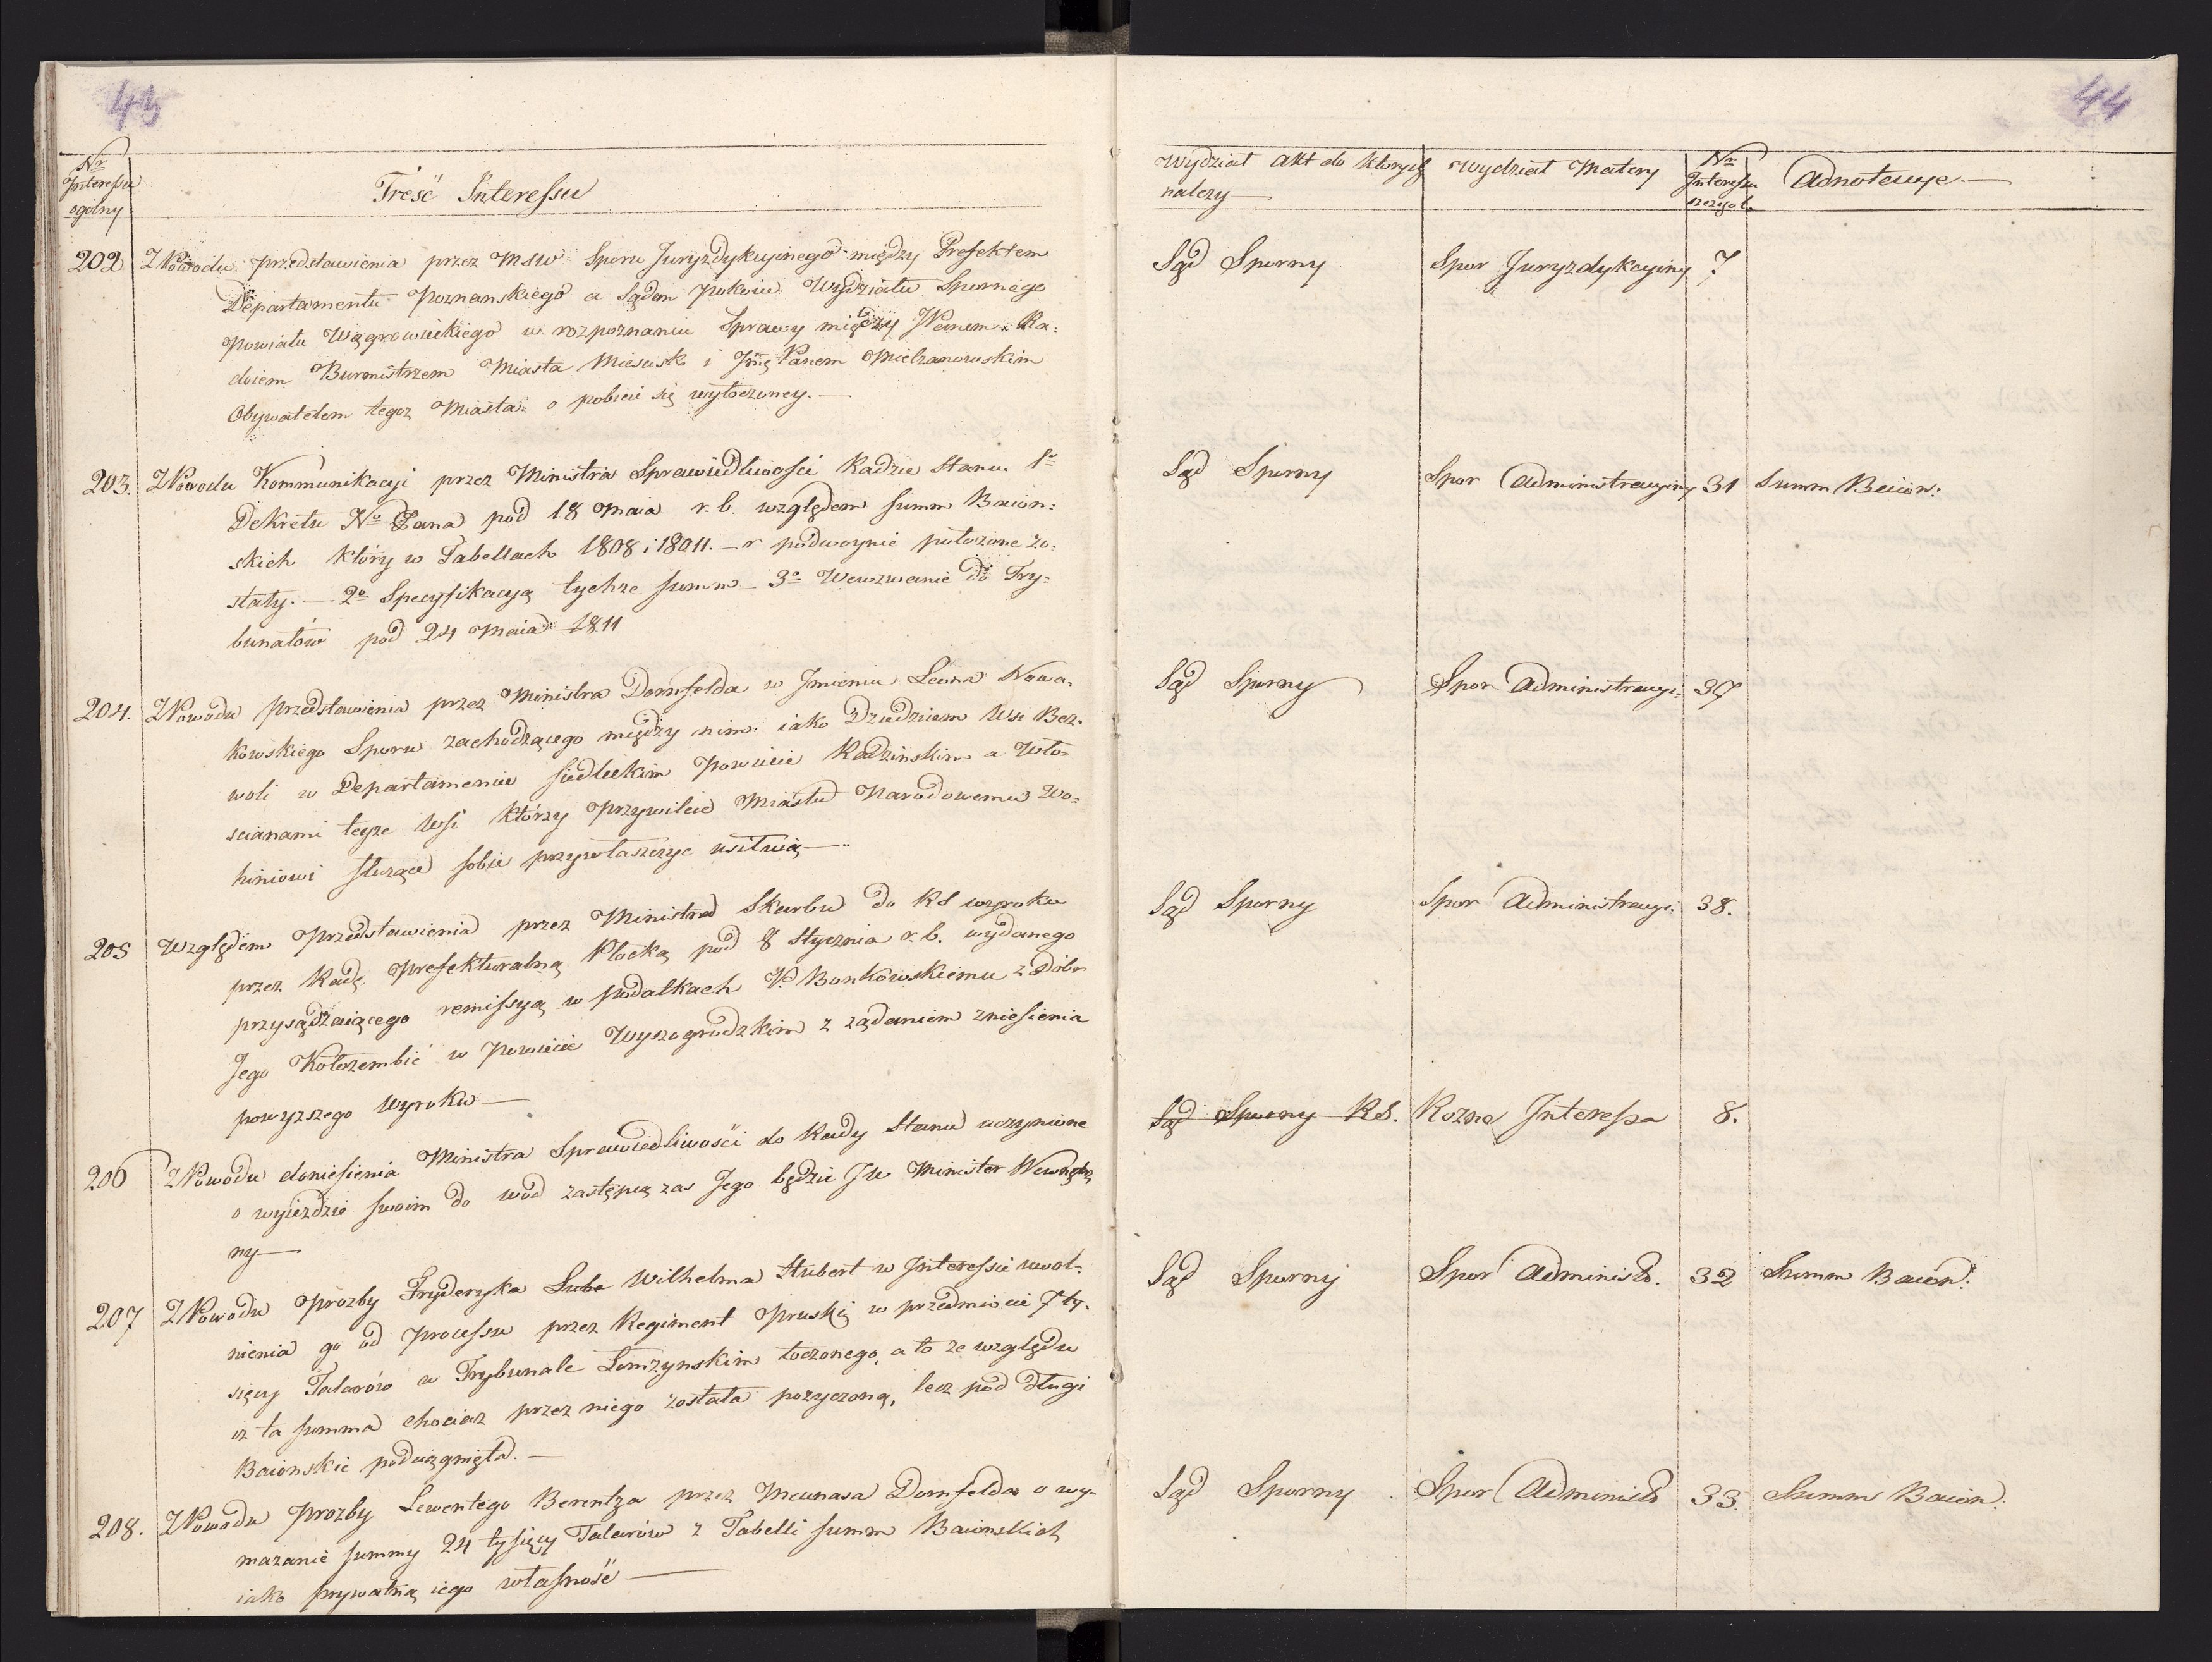 43
Nr
Interessu
ogólny
Treść Interessu
202 Z Powodu przedstawienia przez MSW Sporu Juryzdykcyinego między Prefektem
Departamentu Poznanskiego a Sądem Pokoiu Wydziału Spornego
Powiatu Wągrowieckiego w rozpoznaniu Sprawy między JPanem Ra=
doiem Burmistrzem Miasta Miescisk i Jmć Panem Mielzanowskim
Obywatelem tegoz Miasta o pobicie się wytoczoney. —
203. Z Powodu Kommunikacyi przez Ministra Sprawiedliwości Radzie Stanu 1o
Dekretu No Pana pod 18 Maia r. b. względem summ Baion=
skich który w Tabellach 1808 i 18011. — r podwoynie położone zo=
stały. — 2o Specyfikacyą tychze summ — 3o Wezwanie do Try=
bunałów pod 24 Maia 1811
204. Z Powodu przedstawienia przez Ministra Dornfelda w Jmieniu Leona Nowa=
kowskiego Sporu zachodzącego między nim iako Dziedzicem Wsi Bez=
woli w Departamencie Siedleckim Powiecie Radzinskim a Wło=
scianami teyze Wsi którzy Przywileie Miastu Narodowemu Wo=
hiniowi służące sobie przywłaszczyc usiłuią —
205 Względem Przedstawienia przez Ministra Skarbu do RS wyroku
przez Radę Prefekturalną Płocką pod 8 Stycznia r. b. wydanego
przysądzaiącego remissyą w podatkach P. Bonkowskiemu z Dobr
Jego Kołozembić w Powiecie Wyszogrodzkim z ządaniem zniesienia
powyzszego Wyroku —
206 Z Powodu doniesienia Ministra Sprawiedliwości do Rady Stanu uczynione
o wyiezdzie swoim do wód zastępcą zas Jego będzie JW Minister Wewnętrz
ny —
207 Z Powodu Prozby Fryderyka Lube Wilhelma Stubert w Interessie uwol=
nienia go od Processu przez Regiment Pruski w przedmiocie 7 ty=
sięcy Talarów w Trybunale Lomzynskim toczonego, a to ze względu
iz ta summa chociaz przez niego została pozyczoną, lecz pod długi
Baionskie podciągnięta. —
208. Z Powodu Prozby Lewentego Berentza przez Mecenasa Dornfelda o wy=
mazanie summy 24 tysięcy Talarów z Tabelli summ Baionskich
iako prywatną iego własność —
44
Wydział Akt do których
nalezy —
Wydział Matery
Nr
Interessu
szczegol.
Adnotacye. —
Sąd Sporny Spor Juryzdykcyiny 7
Sąd Sporny Spor Administracyiny 31 Summ Baion:
Sąd Sporny Spor Administracyi= 37
Sąd Sporny Spor Administracyi: 38.
Sąd Sporny RS. Rozne Interessa 8.
Sąd Sporny Spor Administr. 32 Summ Baion:
Sąd Sporny Spor Administr 33. Summ Baion: